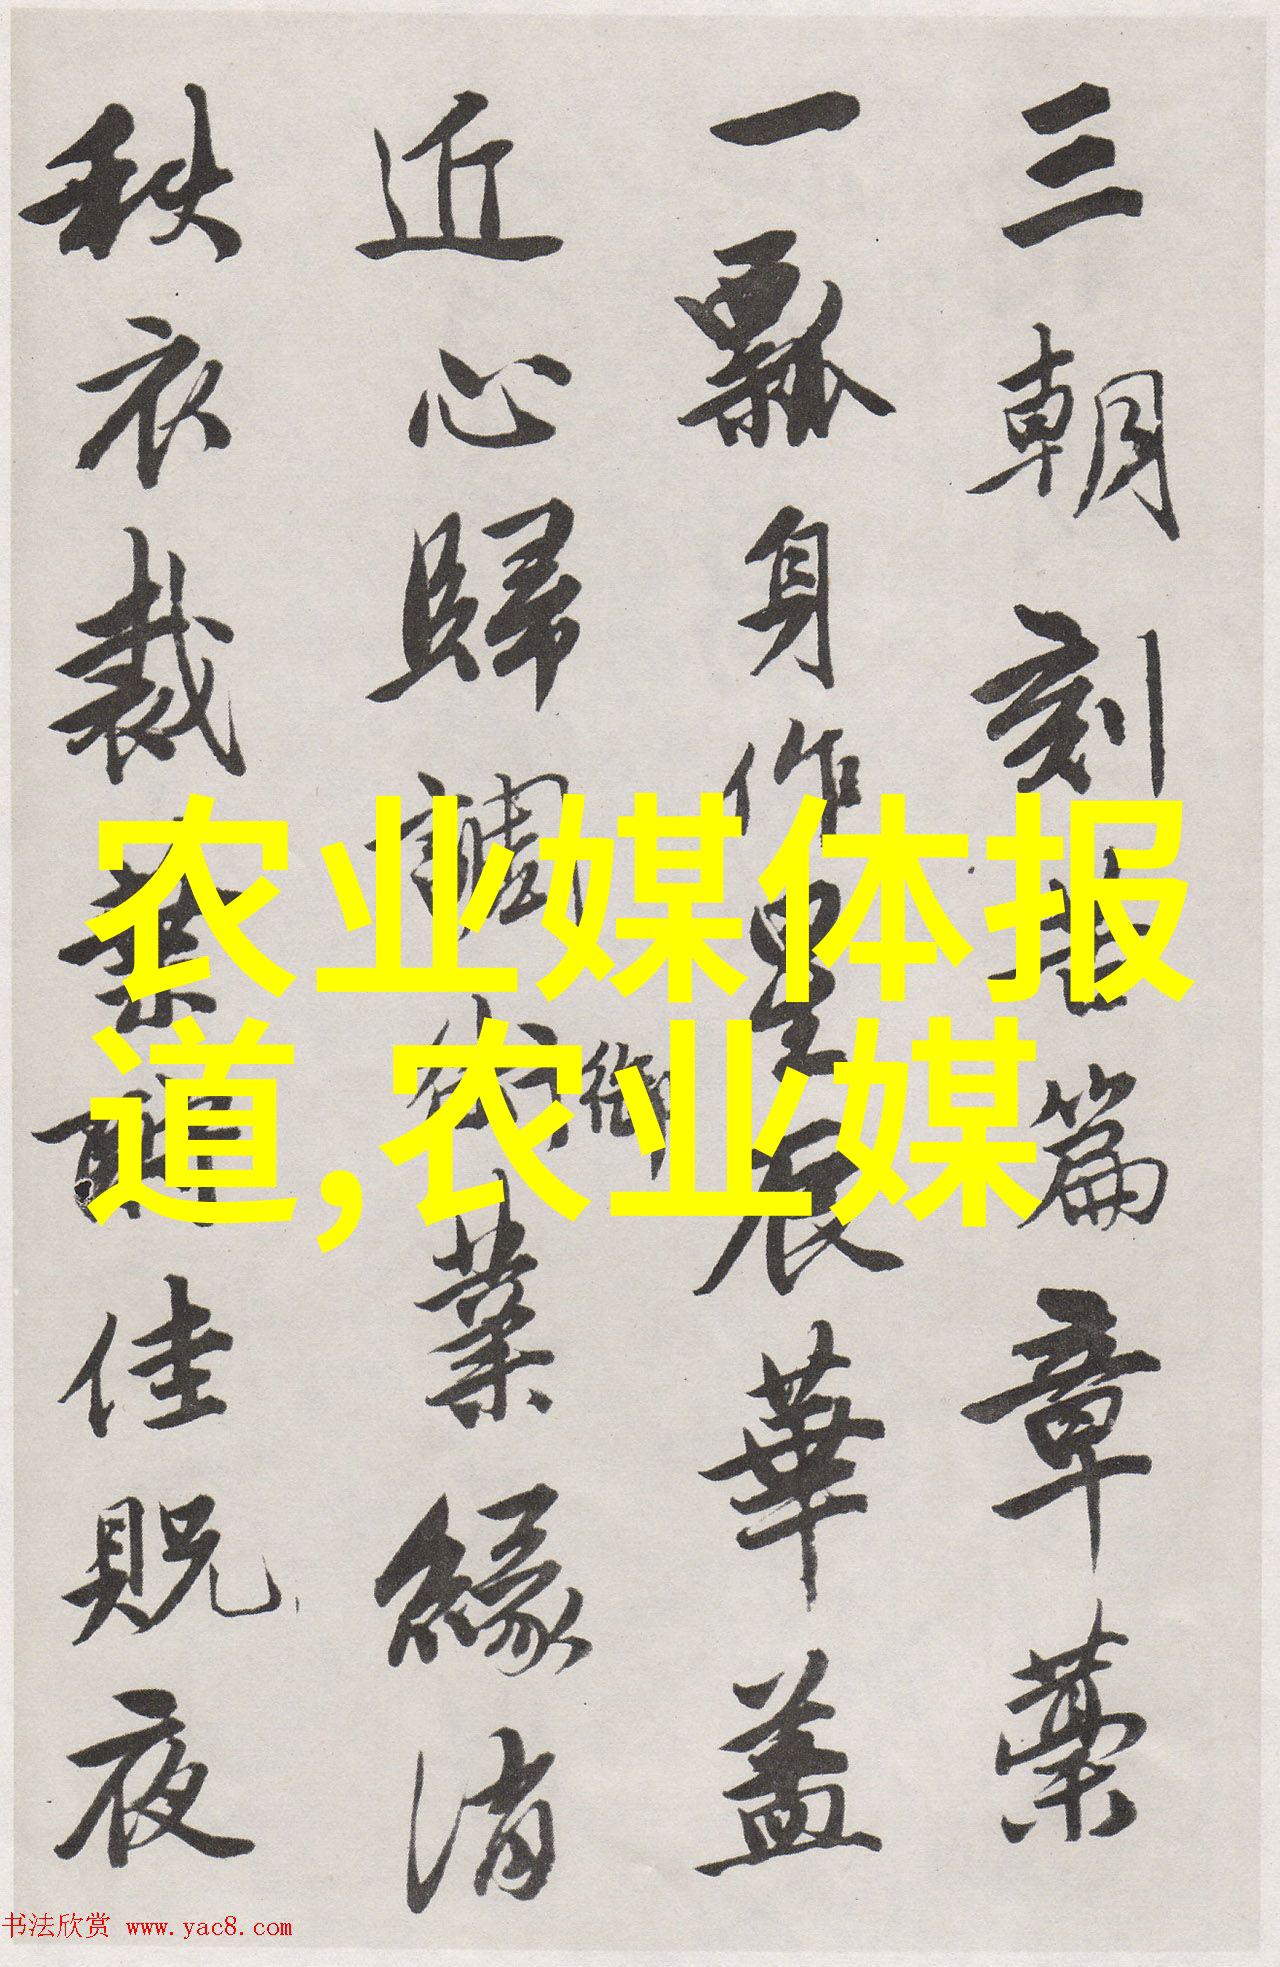 三朝刻篇章藁
一瓢身作星辰華蓋
近心歸調業緣消
秩衣裁佳貺夜
农业媒体报
道,农业媒
书法欣赏 www.yac8.com